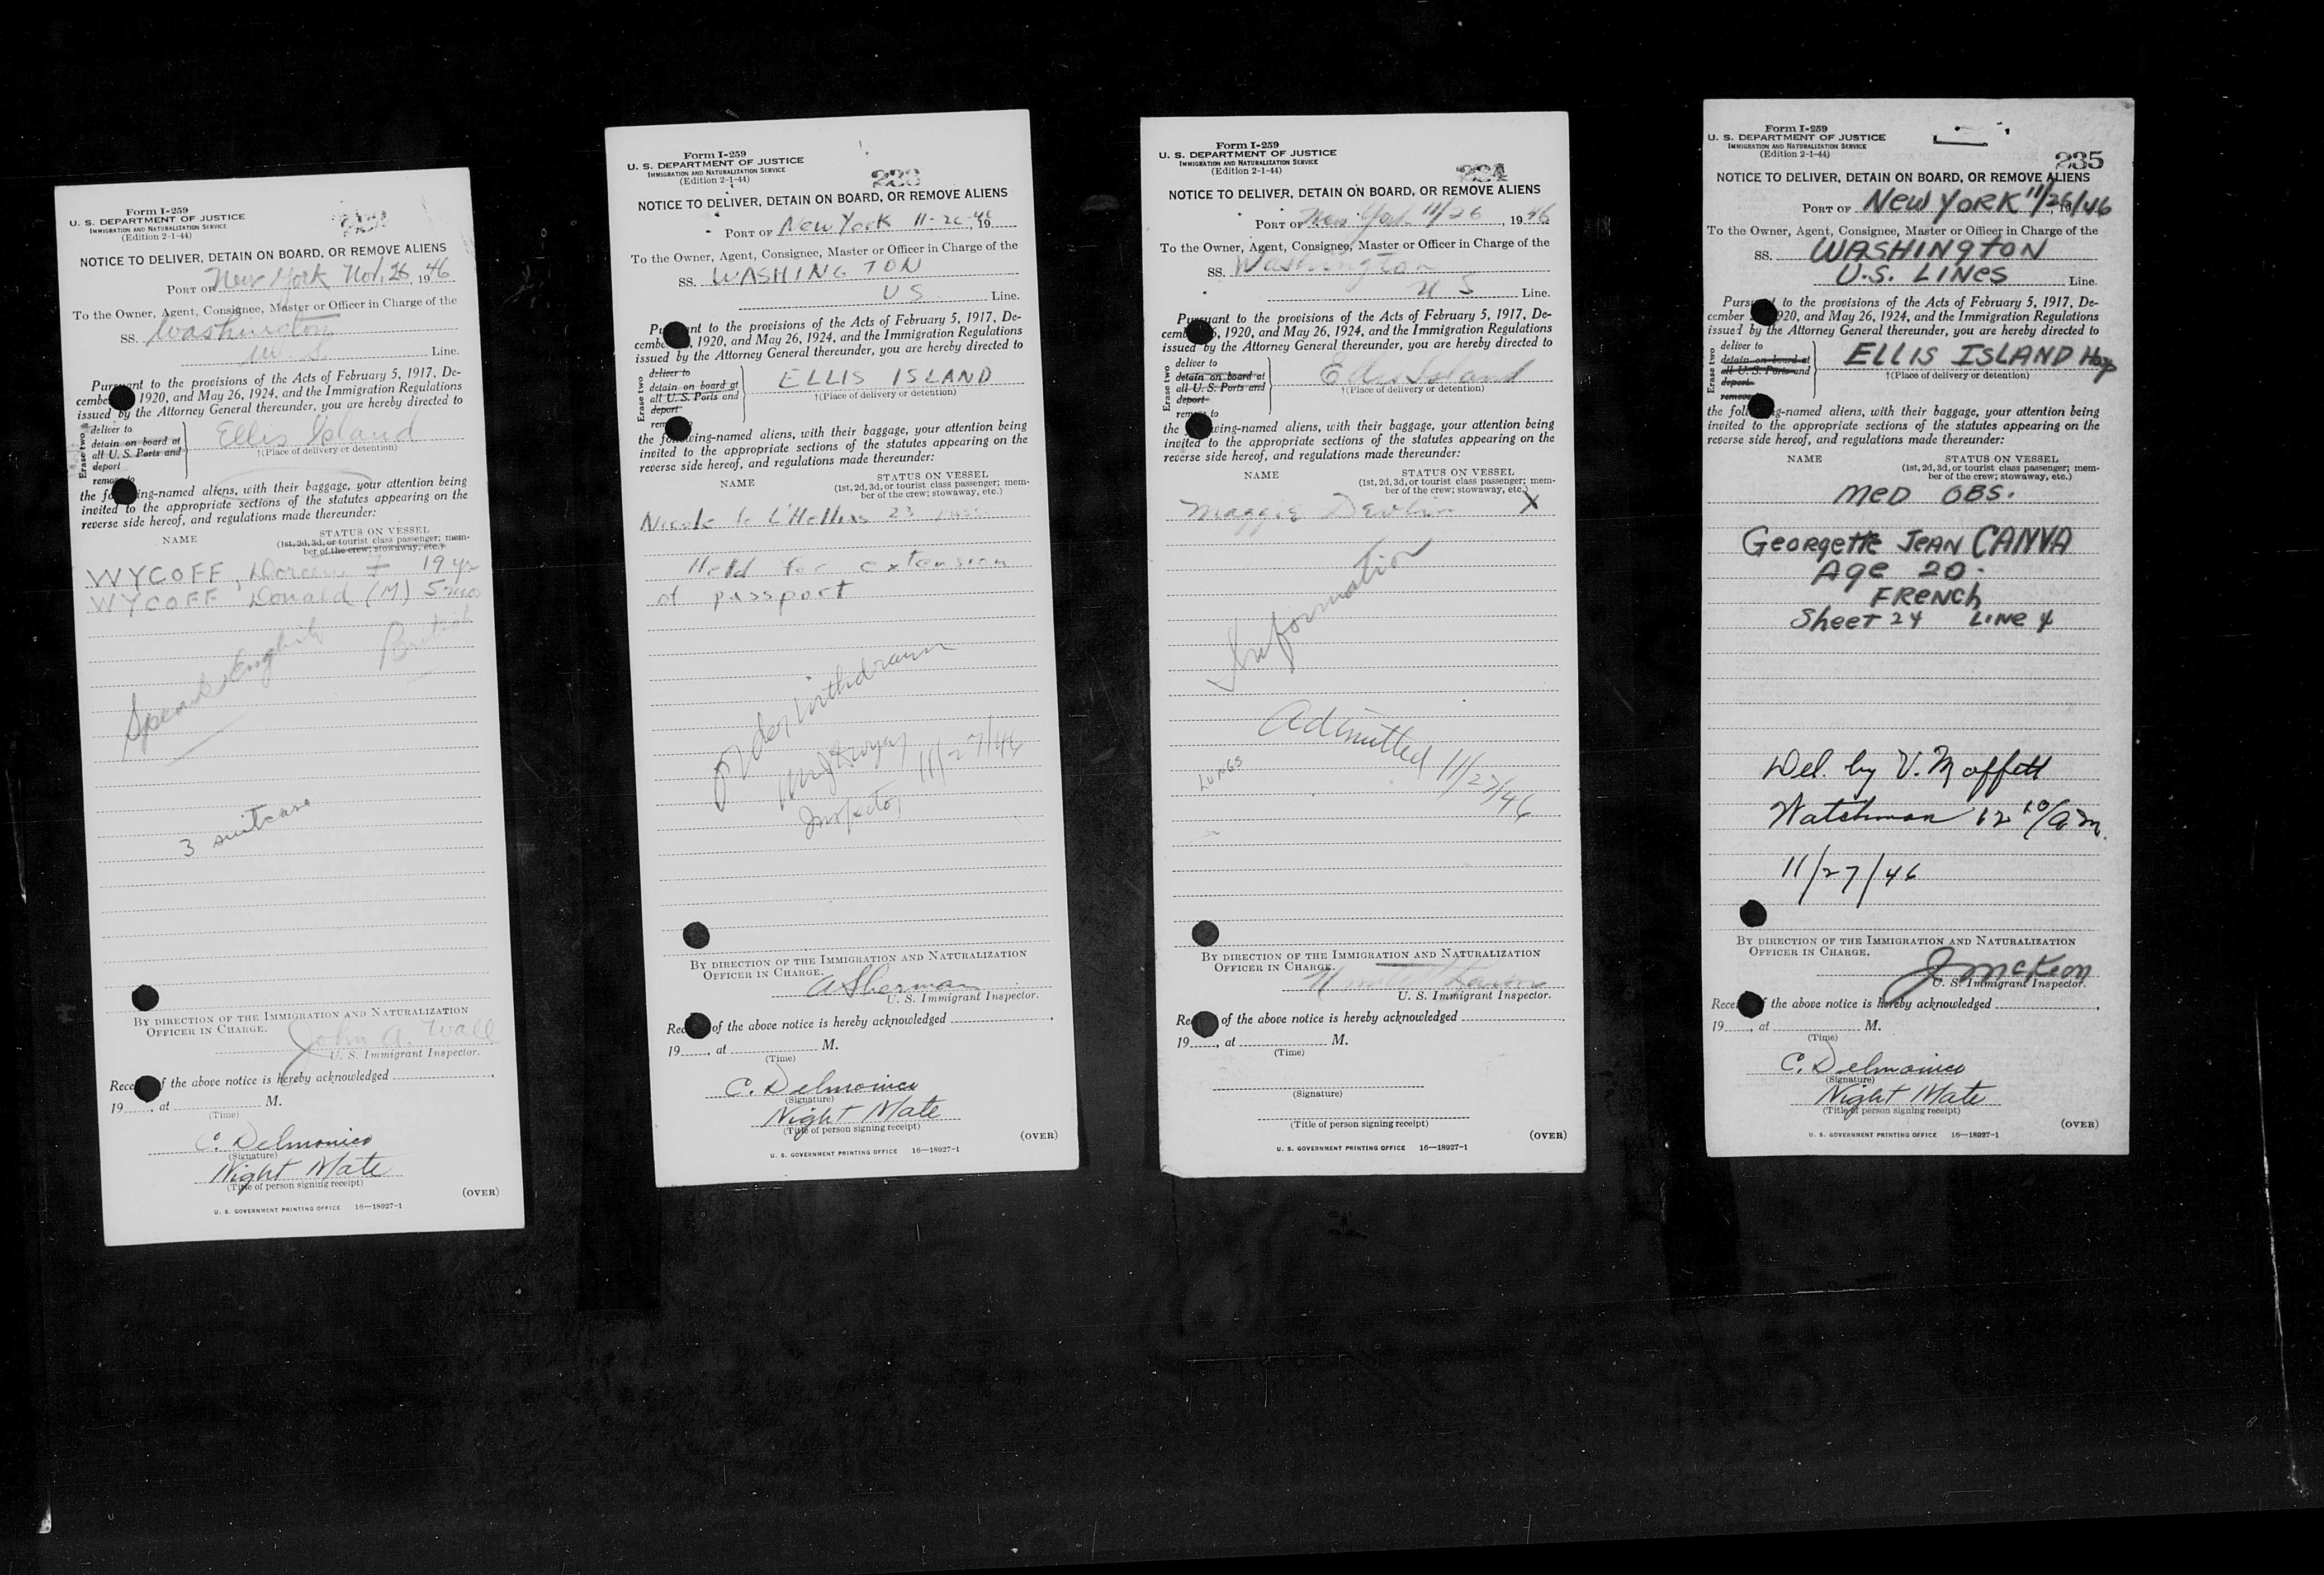 Form I-259
U. S. DEPARTMENT OF JUSTICE
IMMIGRATION AND NATURALIZATION SERVICE
(Edition 2-1-44)
NOTICE TO DELIVER, DETAIN ON BOARD, OR REMOVE ALIENS
PORT OF New York Nov. 26, 1946
To the Owner, Agent, Consignee, Master or Officer in Charge of the
SS. Washington
U. S. Line.
Pursuant to the provisions of the Acts of February 5, 1917, De-
cember 1920, and May 26, 1924, and the Immigration Regulations
issued by the Attorney General thereunder, you are hereby directed to
Erase two
deliver to
detain on board at
all U. S. Ports and
deport
remove to
Ellis Island
†(Place of delivery or detention)
the following-named aliens, with their baggage, your attention being
invited to the appropriate sections of the statutes appearing on the
reverse side hereof, and regulations made thereunder:
NAME STATUS ON VESSEL
(1st, 2d, 3d, or tourist class passenger; mem-
ber of the crew; stowaway, etc.)
WYCOFF, Doreen F 19 yr
WYCOFF Donald (M) 5 mos
Speaks English British
3 suitcase
BY DIRECTION OF THE IMMIGRATION AND NATURALIZATION
OFFICER IN CHARGE.
John A. Wall
U. S. Immigrant Inspector.
Receipt of the above notice is hereby acknowledged
19 , at M.
(Time)
C. Delmonico
(Signature)
Night Mate
(Title of person signing receipt)
(OVER)
U. S. GOVERNMENT PRINTING OFFICE 16—18927-1
Form I-259
U. S. DEPARTMENT OF JUSTICE
IMMIGRATION AND NATURALIZATION SERVICE
(Edition 2-1-44)
233
NOTICE TO DELIVER, DETAIN ON BOARD, OR REMOVE ALIENS
PORT OF New York 11-26-46, 19
To the Owner, Agent, Consignee, Master or Officer in Charge of the
SS. WASHINGTON
US Line.
Pursuant to the provisions of the Acts of February 5, 1917, De-
cember , 1920, and May 26, 1924, and the Immigration Regulations
issued by the Attorney General thereunder, you are hereby directed to
Erase two
deliver to
detain on board at
all U. S. Ports and
deport
remove to
ELLIS ISLAND
†(Place of delivery or detention)
the following-named aliens, with their baggage, your attention being
invited to the appropriate sections of the statutes appearing on the
reverse side hereof, and regulations made thereunder:
NAME STATUS ON VESSEL
(1st, 2d, 3d, or tourist class passenger; mem-
ber of the crew; stowaway, etc.)
Nicole 23
Held for extension
of passport
Order withdrawn
11/27/46
Inspector
BY DIRECTION OF THE IMMIGRATION AND NATURALIZATION
OFFICER IN CHARGE.
A Sherman
U. S. Immigrant Inspector.
Receipt of the above notice is hereby acknowledged
19 , at M.
(Time)
C. Delmonico
(Signature)
Night Mate
(Title of person signing receipt)
(OVER)
U. S. GOVERNMENT PRINTING OFFICE 16—18927-1
Form I-259
U. S. DEPARTMENT OF JUSTICE
IMMIGRATION AND NATURALIZATION SERVICE
(Edition 2-1-44)
234
NOTICE TO DELIVER, DETAIN ON BOARD, OR REMOVE ALIENS
PORT OF New York 11/26, 1946
To the Owner, Agent, Consignee, Master or Officer in Charge of the
SS. Washington
U S Line.
Pursuant to the provisions of the Acts of February 5, 1917, De-
cember 5, 1920, and May 26, 1924, and the Immigration Regulations
issued by the Attorney General thereunder, you are hereby directed to
Erase two
deliver to
detain on board at
all U. S. Ports and
deport
remove to
Ellis Island
†(Place of delivery or detention)
the following-named aliens, with their baggage, your attention being
invited to the appropriate sections of the statutes appearing on the
reverse side hereof, and regulations made thereunder:
NAME STATUS ON VESSEL
(1st, 2d, 3d, or tourist class passenger; mem-
ber of the crew; stowaway, etc.)
Maggie Devlin X
Information
Admitted 11/27/46
LUNGS
BY DIRECTION OF THE IMMIGRATION AND NATURALIZATION
OFFICER IN CHARGE.
U. S. Immigrant Inspector.
Receipt of the above notice is hereby acknowledged
19 , at M.
(Time)
(Signature)
(Title of person signing receipt)
(OVER)
U. S. GOVERNMENT PRINTING OFFICE 16—18927-1
Form I-259
U. S. DEPARTMENT OF JUSTICE
IMMIGRATION AND NATURALIZATION SERVICE
(Edition 2-1-44)
235
NOTICE TO DELIVER, DETAIN ON BOARD, OR REMOVE ALIENS
PORT OF New YORK 11/26/46
To the Owner, Agent, Consignee, Master or Officer in Charge of the
SS. WASHINGTON
U.S. LINES Line.
Pursuant to the provisions of the Acts of February 5, 1917, De-
cember 1920, and May 26, 1924, and the Immigration Regulations
issued by the Attorney General thereunder, you are hereby directed to
Erase two
deliver to
detain on board at
all U. S. Ports and
deport
remove
ELLIS ISLAND Hosp
†(Place of delivery or detention)
the following-named aliens, with their baggage, your attention being
invited to the appropriate sections of the statutes appearing on the
reverse side hereof, and regulations made thereunder:
NAME STATUS ON VESSEL
(1st, 2d, 3d, or tourist class passenger; mem-
ber of the crew; stowaway, etc.)
MED OBS.
Georgette JEAN CANVA
Age 20.
FRENCH
Sheet 24 LINE 4
Del. by V. Moffett
Watchman 12 10/a.m.
11/27/46
BY DIRECTION OF THE IMMIGRATION AND NATURALIZATION
OFFICER IN CHARGE.
J McKeon
U. S. Immigrant Inspector.
Receipt of the above notice is hereby acknowledged
19 , at M.
(Time)
C. Delmonico
(Signature)
Night Mate
(Title of person signing receipt)
(OVER)
U. S. GOVERNMENT PRINTING OFFICE 16—18927-1